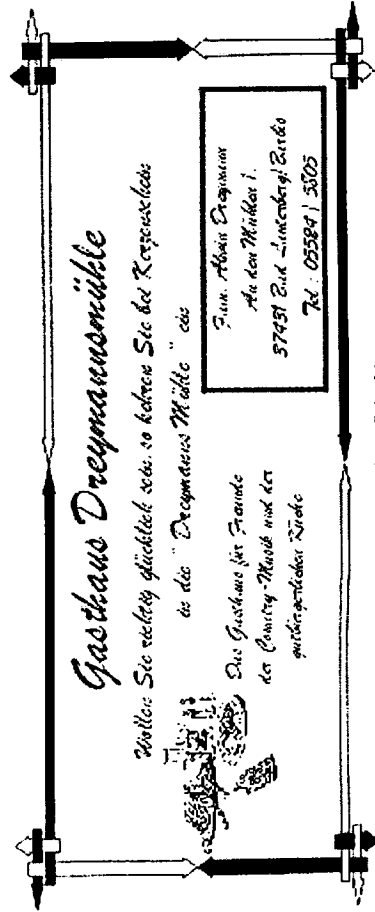 Gasthaus Dreymannsmühle
Wollen Sie richtig glücklich sein, so kehren Sie bei Kerzenschein
in die "Dreymanns Mühle" ein
Das Gasthaus für Freunde
der Country-Musik und der
gutbürgerlichen Küche
Fam. Dreymann
An den Mühlen 1
37431 Bad Lauterberg/ Barbis
Tel : 05524 |